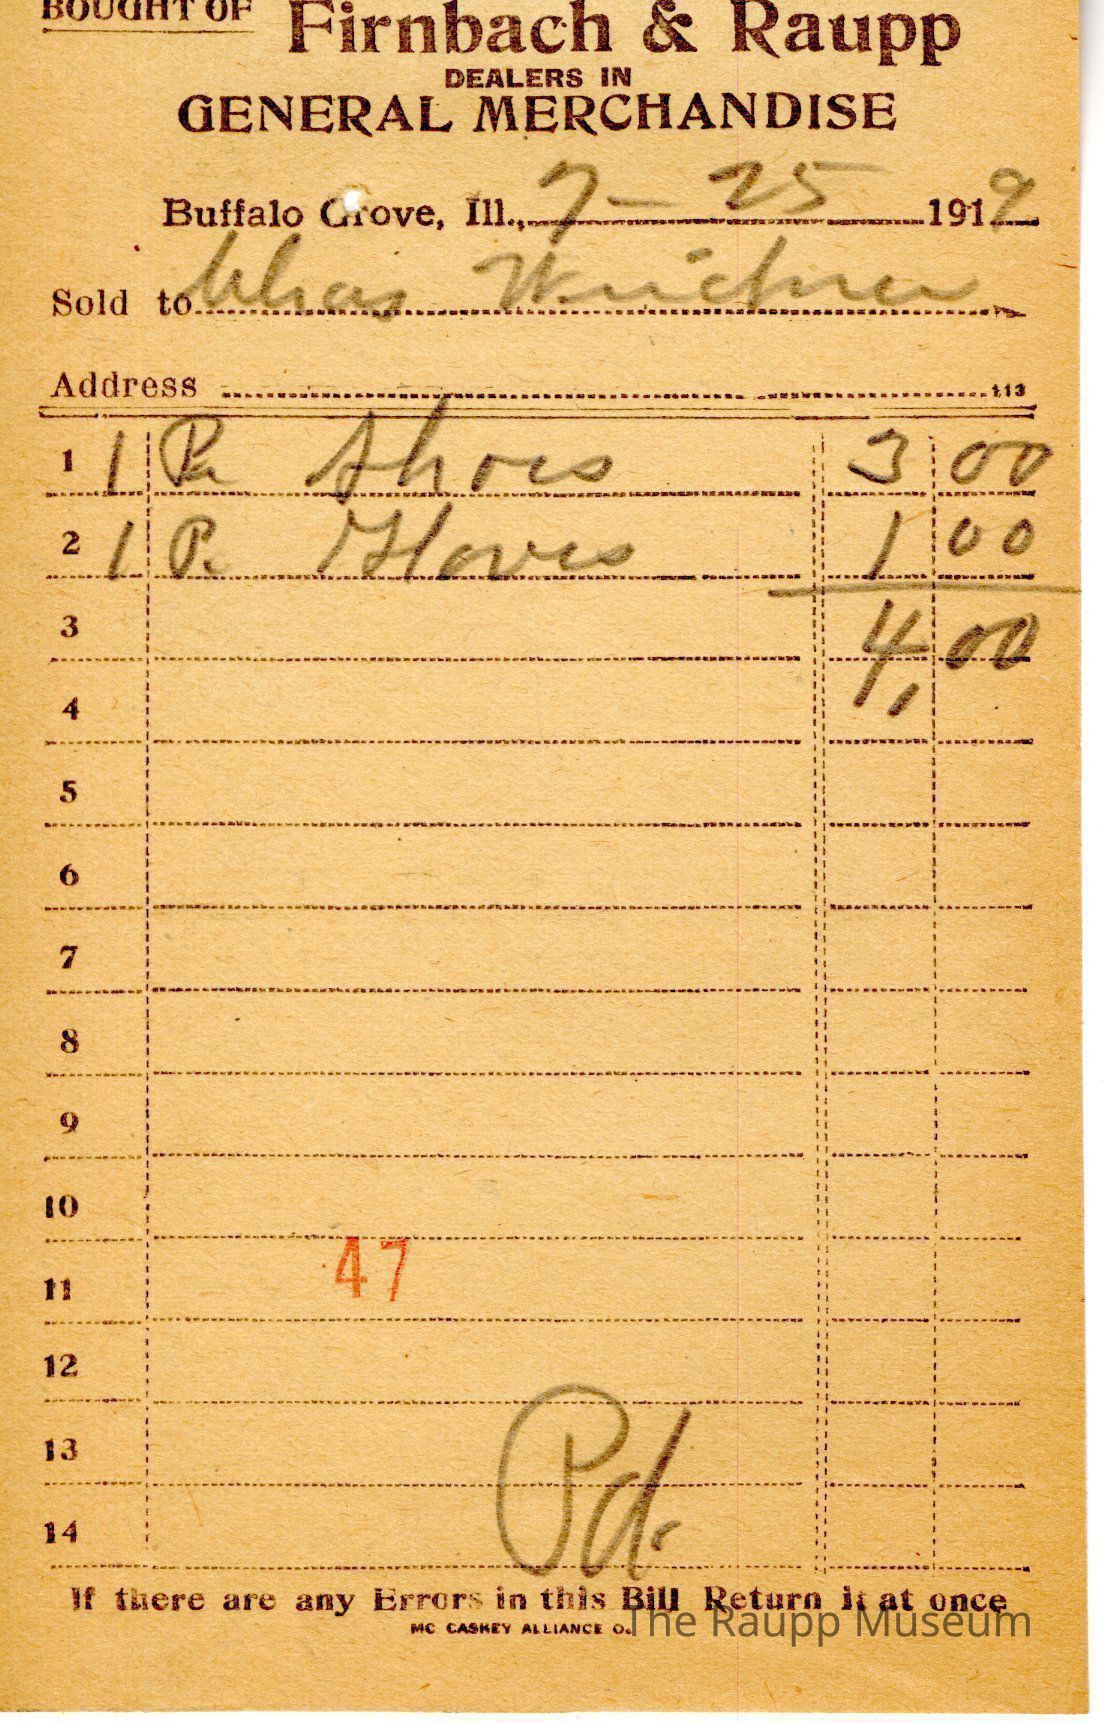 BOUGHT OF Firnbach & Raupp
DEALERS IN
GENERAL MERCHANDISE
Buffalo Grove, Ill., 7 - 25 1919
Sold to Chas
Address 113
1 1 Pr Shoes 3 00
2 1 Pr Gloves 1 00
3 4,00
4
5
6
7
8
9
10
47
11
12
13
Pd.
14
If there are any Errors in this Bill Return it at once
MC CASKEY ALLIANCE O.
The Raupp Museum